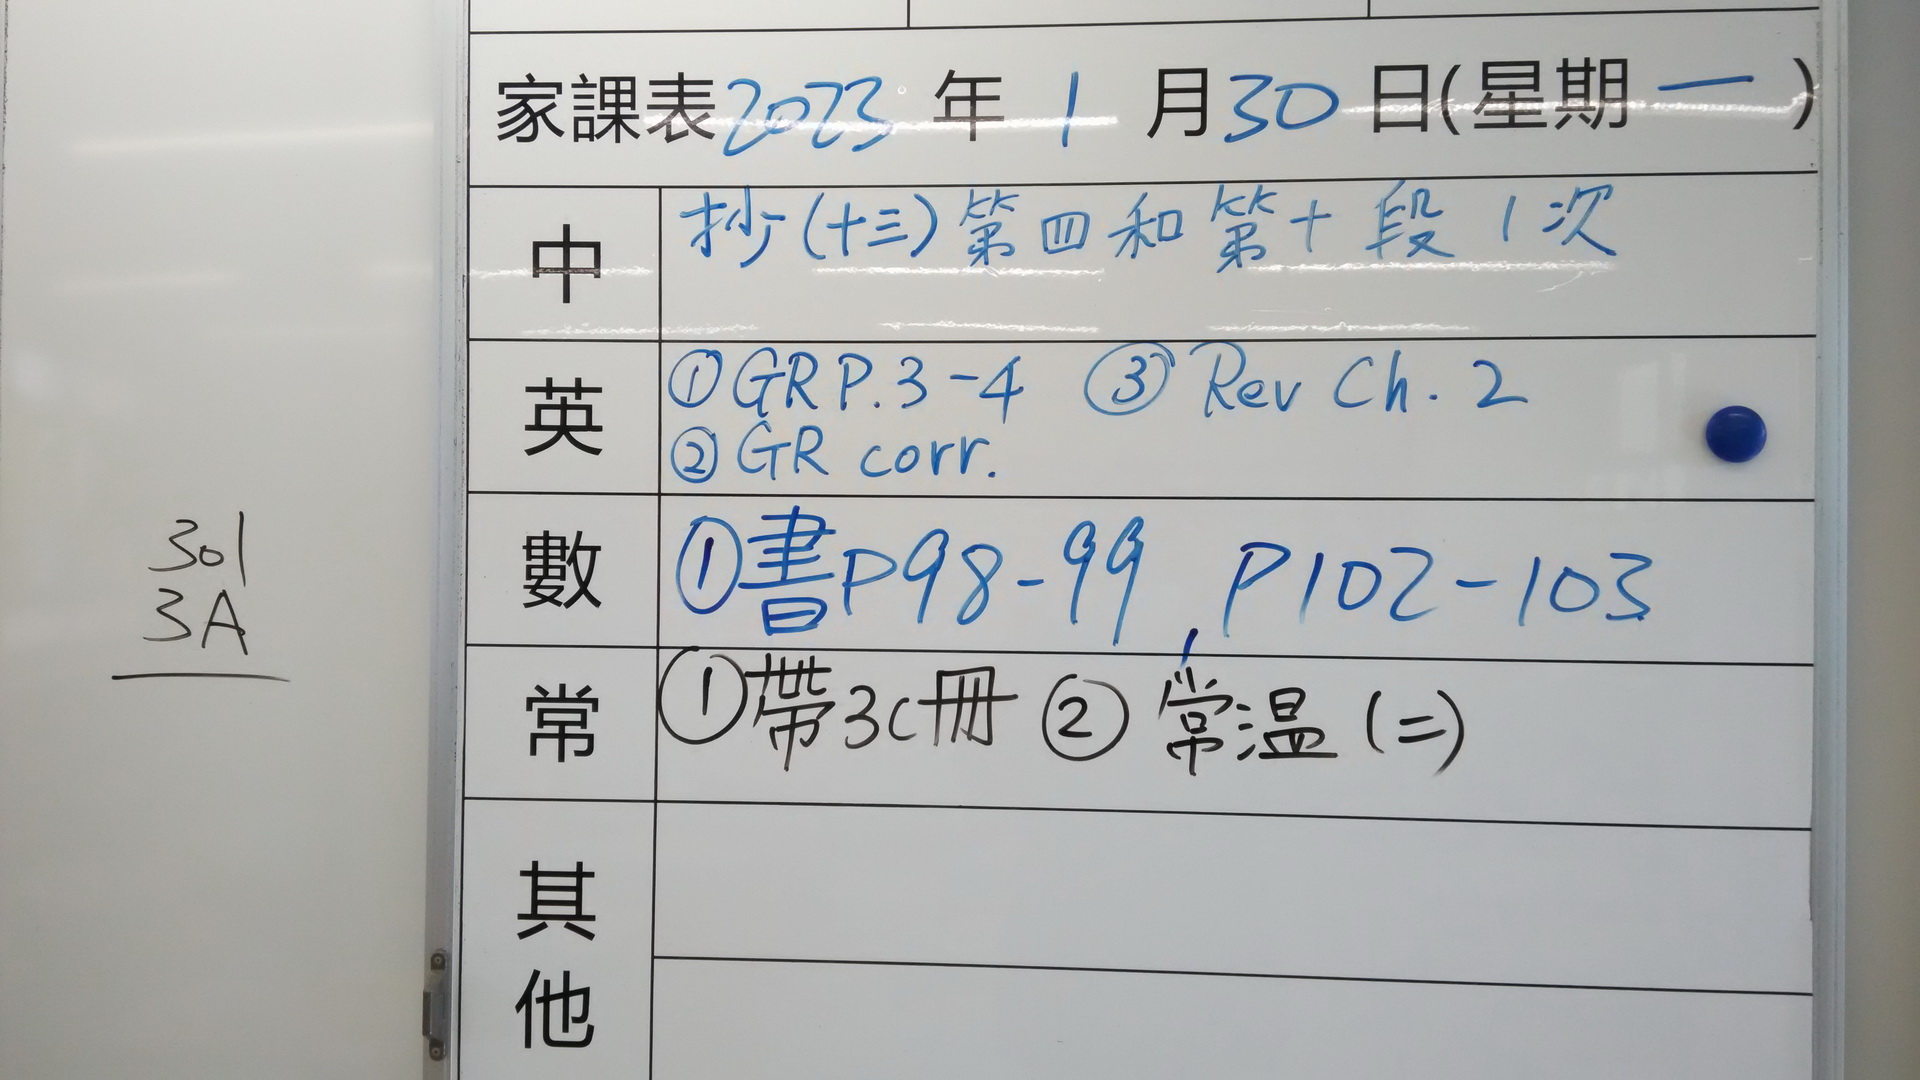 家課表2023年1月30日(星期一)
中
抄(十三)第四和第十段1次
英
①GR P.3-4 ③Rev Ch. 2
②GR corr.
數
①書P98-99, P102-103
常
①帶3C冊 ②常温(二)
其
他
301
3A